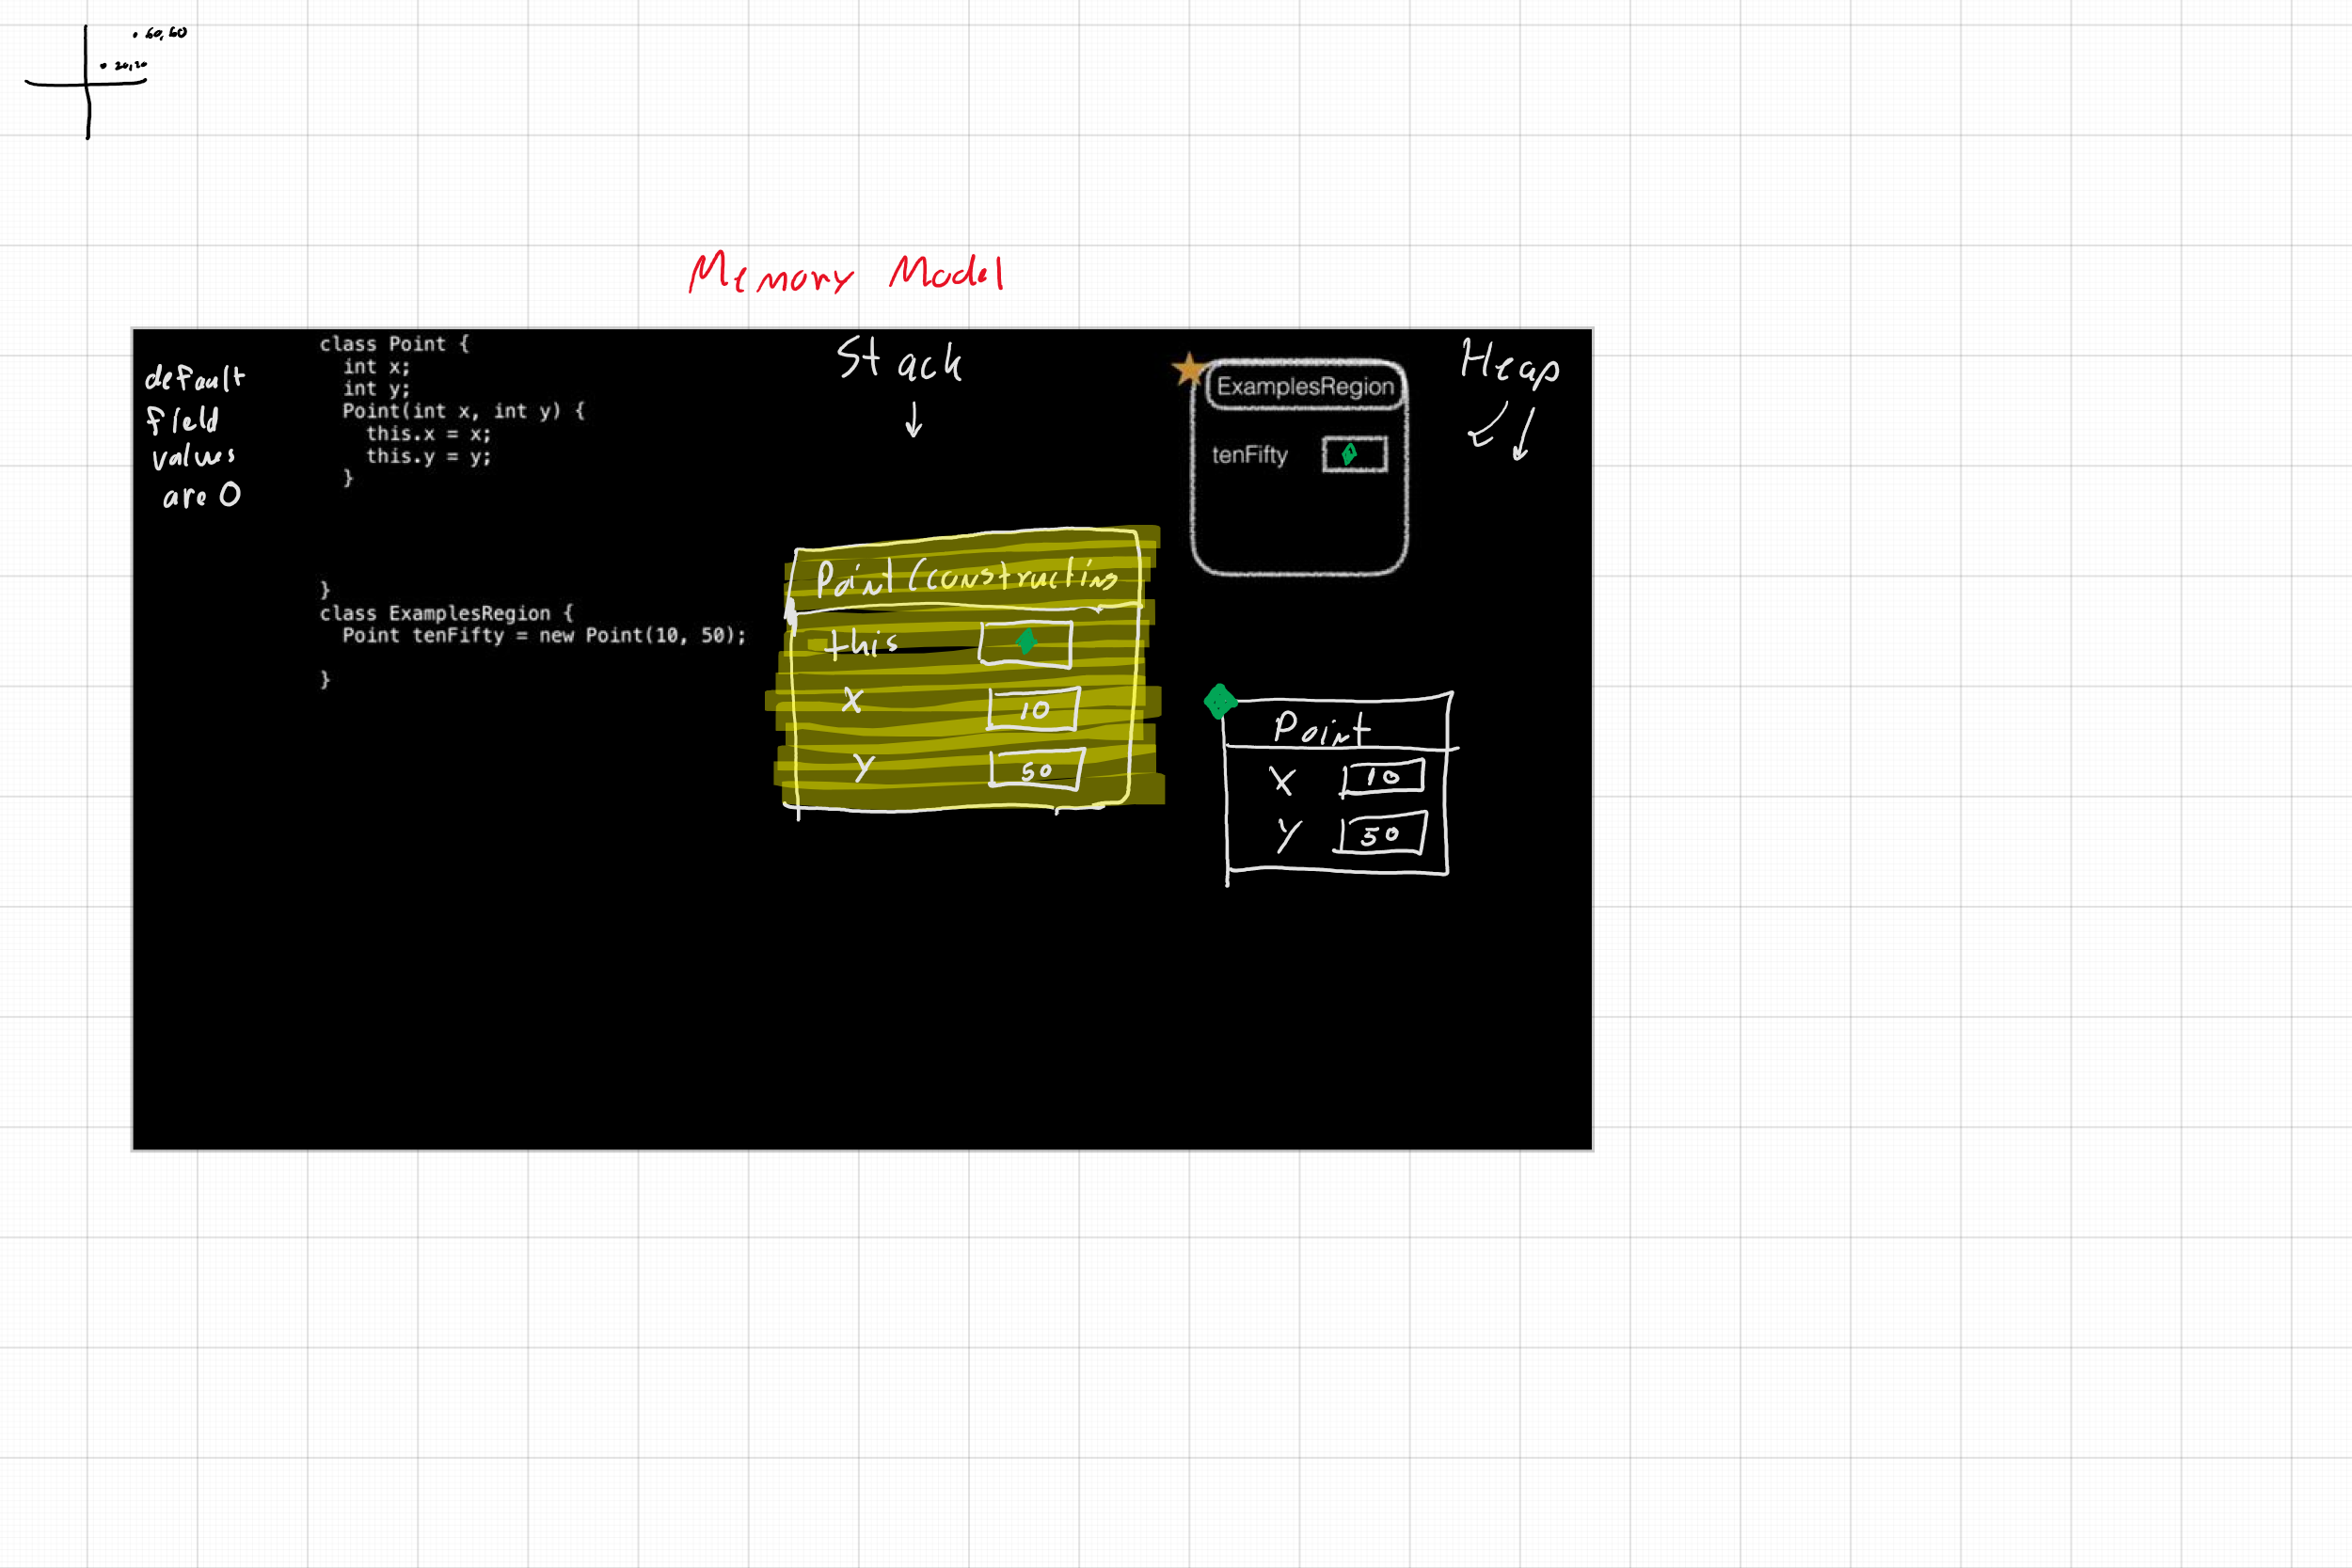 60,60
20,20
Memory Model
default
field
values
are 0
class Point {
int x;
int y;
Point(int x, int y) {
this.x = x;
this.y = y;
}
}
class ExamplesRegion {
Point tenFifty = new Point(10, 50);
}
Stack
Point (constructing
this
x 10
y 50
Heap
ExamplesRegion
tenFifty
Point
x 10
y 50